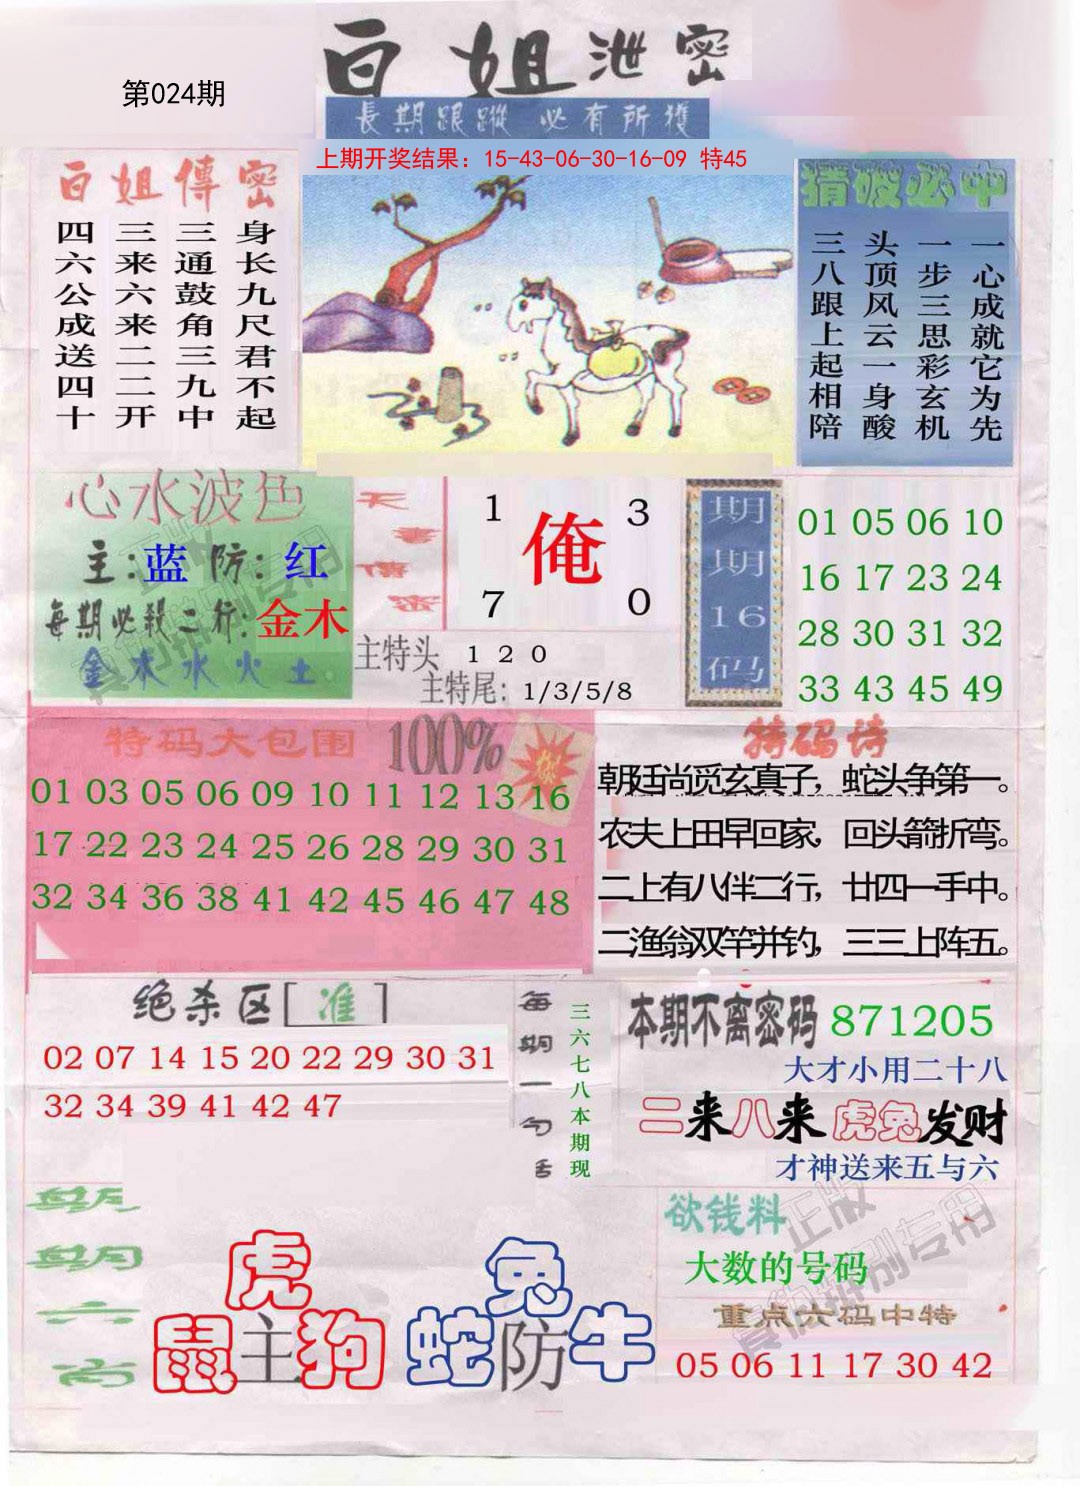 第024期
白姐泄密
長期跟蹤 必有所獲
上期开奖结果：15-43-06-30-16-09 特45
白姐傳密
身长九尺君不起
三通鼓角三九中
三来六来二二开
四六公成送四十
猜破必中
一心成就它为先
一步三思彩玄机
头顶风云一身酸
三八跟上起相陪
心水波色
主:蓝 防:红
每期必殺二行:金木
金木水火土
天書傳密
1 3
俺
7 0
主特头 1 2 0
主特尾: 1/3/5/8
期期16码
01 05 06 10
16 17 23 24
28 30 31 32
33 43 45 49
特码大包围 100%
01 03 05 06 09 10 11 12 13 16
17 22 23 24 25 26 28 29 30 31
32 34 36 38 41 42 45 46 47 48
特码诗
朝廷尚觅玄真子，蛇头争第一。
农夫上田早回家，回头箭折弯。
二上有八伴二行，廿四一手中。
二渔翁双竿并钓，三三上阵五。
绝杀区[准]
02 07 14 15 20 22 29 30 31
32 34 39 41 42 47
每期一句
三六七八本期现
本期不离密码 871205
大才小用二十八
二来八来虎兔发财
才神送来五与六
欲钱料
大数的号码
重点六码中特
05 06 11 17 30 42
虎
鼠主狗
兔
蛇防牛